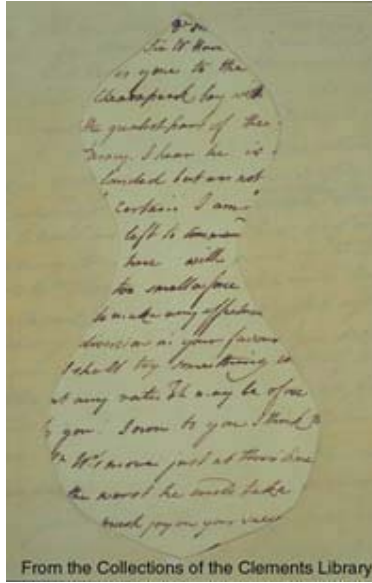 Sir W Howe
is gone to the
Chesapeak bay with
the greatest part of the
army. I hear he is
landed but am not
certain I am
left to command
here with
too small a force
to make any effectual
diversion in your favour
I shall try something
at any rate It may be of use
to you. I own to you I think
Sr W's move just at this time
the worst he could take
much joy on your
From the Collections of the Clements Library